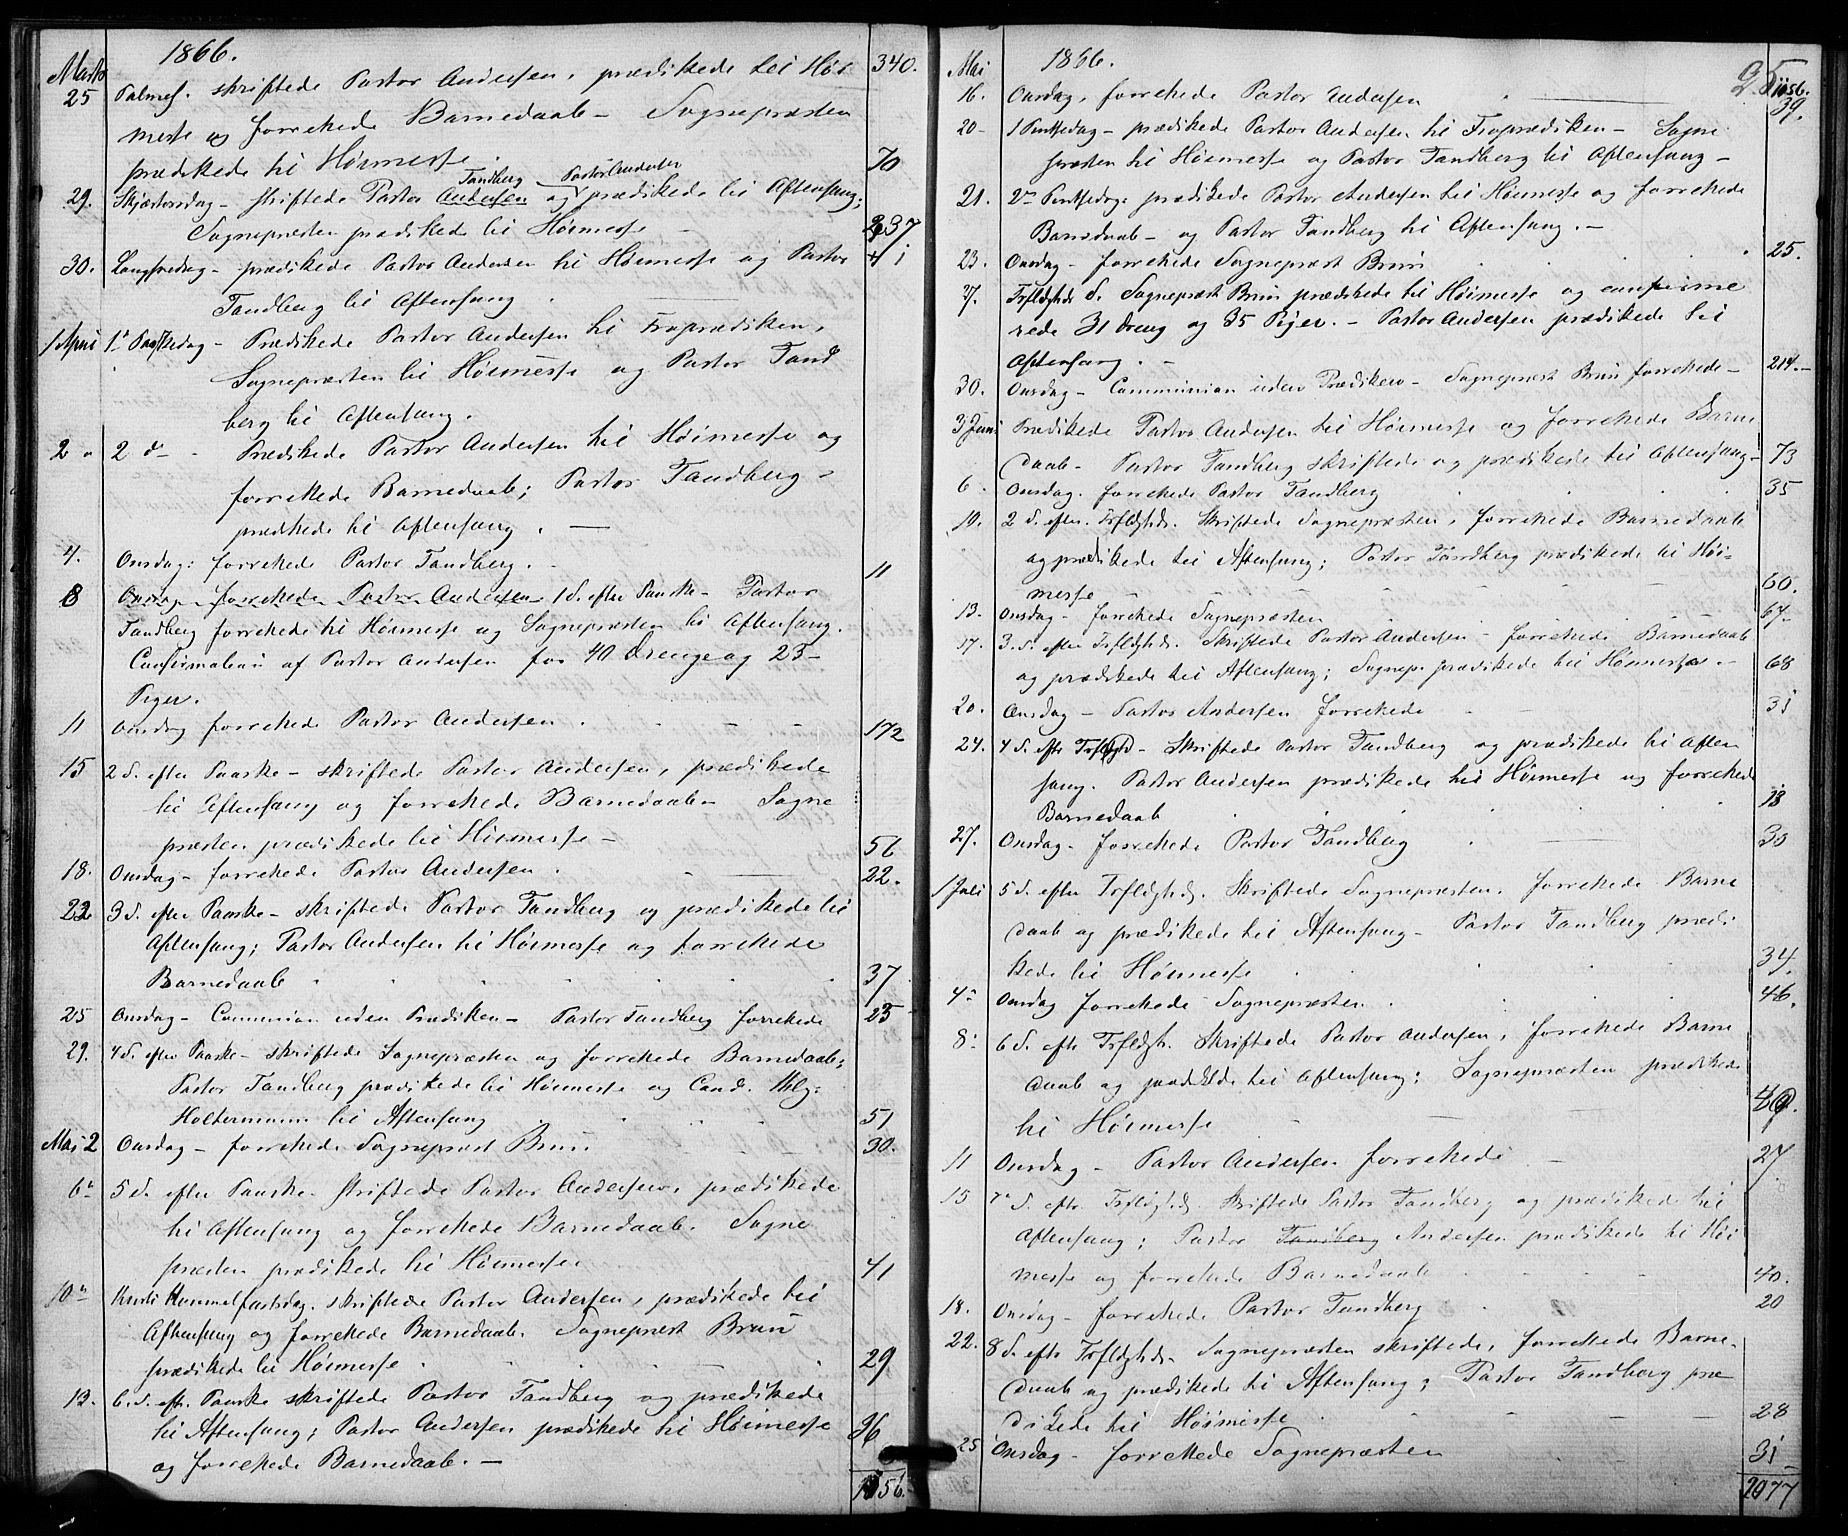 Marts 1866. 340.
25 Palmes. skriftede Pastor Andersen, prædikede til Høi
messe og forrettede Barnedaab – Sognepræsten
prædikede til Høimesse. 70
Tandberg Pastor Andersen
29. Skjærtorsdag – skriftede Pastor Andersen og prædikede til Aftensang;
Sognepræsten prædikede til Høimesse – 237
30. Langfredag – prædikede Pastor Andersen til Høimesse og Pastor
Tandberg til Aftensang .
1 April 1ste Paaskedag – Prædikede Pastor Andersen til Froprædiken,
Sognepræsten til Høimesse og Pastor Tand
berg til Aftensang.
2 " 2 d – Prædikede Pastor Andersen til Høimesse og
forrettede Barnedaab; Pastor Tandberg –
prædikede til Aftensang . —
4. Onsdag: forrettede Pastor Tandberg. 11
8 Onsdag – forrettede Pastor Andersen 1 S. efter Paaske – Pastor
Tandberg forrettede til Høimesse og Sognepræsten til Aftensang.
Confirmation af Pastor Andersen for 40 Drenge og 23 –
Piger.
11 Onsdag forrettede Pastor Andersen . – – 172
15 2 S. efter Paaske – skriftede Pastor Andersen, prædikede
til Aftensang og forrettede Barnedaab – Sogne
præsten prædikede til Høimesse – 56
18. Onsdag – forrettede Pastor Andersen . – 22.
22 3 S. efter Paaske – skriftede Pastor Tandberg og prædikede til
Aftensang; Pastor Andersen til Høimesse og forrettede
Barnedaab . . . . 37
25 Onsdag – Communion uden Prædiken – Pastor Tandberg forrettede 23
29. 4 S. efter Paaske – skriftede Sognepræsten og forrettede Barnedaab;
Pastor Tandberg prædikede til Høimesse og Cand. theol:
Holtermann til Aftensang . . . 51
Mai 2 Onsdag – forrettede Sognepræst Brun. – – 30.
6 5 S. efter Paaske. skriftede Pastor Andersen, prædikede
til Aftensang og forrettede Barnedaab. Sogne
præsten prædikede til Høimesse. 41
10 Kristi Himmelfartsdag. skriftede Pastor Andersen, prædikede til
Aftensang og forrettede Barnedaab. Sognepræst Brun
prædikede til Høimesse . . . 29
13. 6. S. eft. Paaske skriftede Pastor Tandberg og prædikede
til Aftensang; Pastor Andersen prædikede til Høimesse 36
og forrettede Barnedaab. –
1156.
Mai 1866. 25 1156.
16. Onsdag, forrettede Pastor Andersen – 39.
20 – 1 Pintsedag – prædikede Pastor Andersen til Froprædiken – Sogne
præsten til Høimesse og Pastor Tandberg til Aftensang –
21. 2den Pintsedag: prædikede Pastor Andersen til Høimesse og forrettede
Barnedaab – og Pastor Tandberg til Aftensang. –
23. Onsdag – forrettede Sognepræst Brun . . . . 25.
27. Trefoldigheds S. Sognepræst Brun prædikede til Høimesse og confirme
rede 31 Dreng og 35 Piger. – Pastor Andersen prædikede til
Aftensang. –
30. Onsdag – Communion uden Prædiken – Sognepræst Brun forrettede – 214. –
3 Juni Prædikede Pastor Andersen til Høimesse og forrettede Barne
daab – Pastor Tandberg skriftede og prædikede til Aftensang – 73
6 . Onsdag. forrettede Pastor Tandberg . . . 35
10. 2 S. efter. Trfldghds. Skriftede Sognepræsten, forrettede Barnedaab
og prædikede til Aftensang; Pastor Tandberg prædikede til Høi–
messe . – . – 60.
13. Onsdag – forrettede Sognepræsten . . 67.
17. 3. S. efter Trfldghds. Skriftede Pastor Andersen – forrettede Barnedaab
og prædikede til Aftensang; Sognepr. prædikede til Høimesse. – 68
20. Onsdag – Pastor Andersen forrettede . – 31
24. 4 S. efter Trfldghd – Skriftede Pastor Tandberg og prædikede til Aften
sang. Pastor Andersen prædikede til Høimesse og forrettede
Barnedaab . . . . 18
27. Onsdag – forrettede Pastor Tandberg . — 30
1 Juli 5 S. efter Trfldghds. Skriftede Sognepræsten. forrettede Barne
daab og prædikede til Aftensang – Pastor Tandberg prædi
kede til Høimesse . . . 34.
4 Onsdag forrettede Sognepræsten . . 46.
8 6 S. eftr Trfldgh. Skriftede Pastor Andersen, forrettede Barne
daab og prædikede til Aftensang; Sognepræsten prædikede
til Høimesse – –
11 Onsdag – Pastor Andersen forrettede – 27
15 7 S. eftr Trfldghds. Skriftede Pastor Tandberg og prædikede til
Aftensang; Pastor Tandberg Andersen prædikede til Høi
messe og forrettede Barnedaab . . . 40.
18. Onsdag – forrettede Pastor Tandberg . 20
22. 8 S. eftr Trfldghds. Sognepræsten skriftede, forrettede Barne–
daab og prædikede til Aftensang; Pastor Tandberg præ
dikede til Høimesse . – – 28
25 Onsdag – forrettede Sognepræsten 31
2077